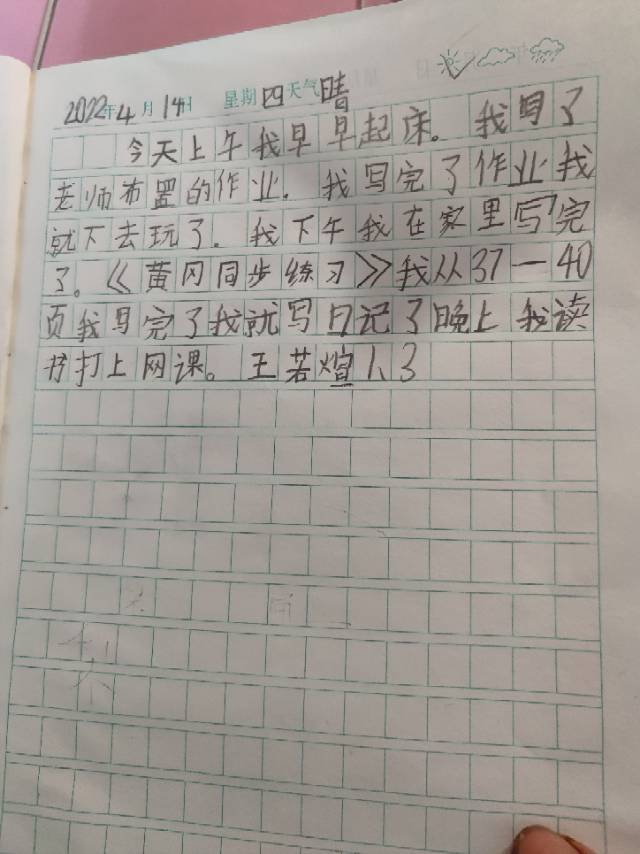 2022年4月14日 星期四天气晴
今天上午我早早起床。我写了
老师布置的作业。我写完了作业我
就下去玩了。我下午我在家里写完
了。《黄冈同步练习》我从37—40
页我写完了我就写日记了晚上我读
书打上网课。王若煊1、3